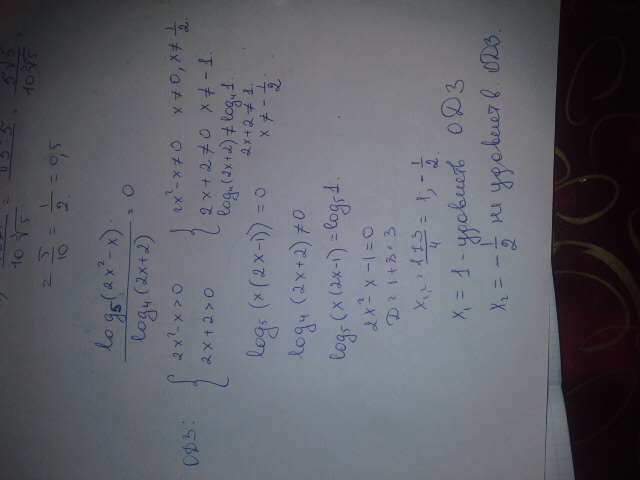 10 √5
10 √5
= 5/10 = 1/2 = 0,5
log₅(2x² - x) / log₄(2x+2) = 0
ОДЗ: { 2x² - x > 0 { 2x² - x ≠ 0 x ≠ 0, x ≠ 1/2.
2x + 2 > 0 2x + 2 ≠ 0 x ≠ -1.
log₄(2x+2) ≠ log₄1.
2x+2 ≠ 1.
x ≠ -1/2.
log₅(x(2x-1)) = 0
log₄(2x+2) ≠ 0
log₅(x(2x-1) = log₅1.
2x² - x - 1 = 0
x₁,₂ = 1±3/4 = 1, -1/2.
x₁ = 1 - удовлеть ОДЗ
x₂ = -1/2 не удовлетв. ОДЗ.